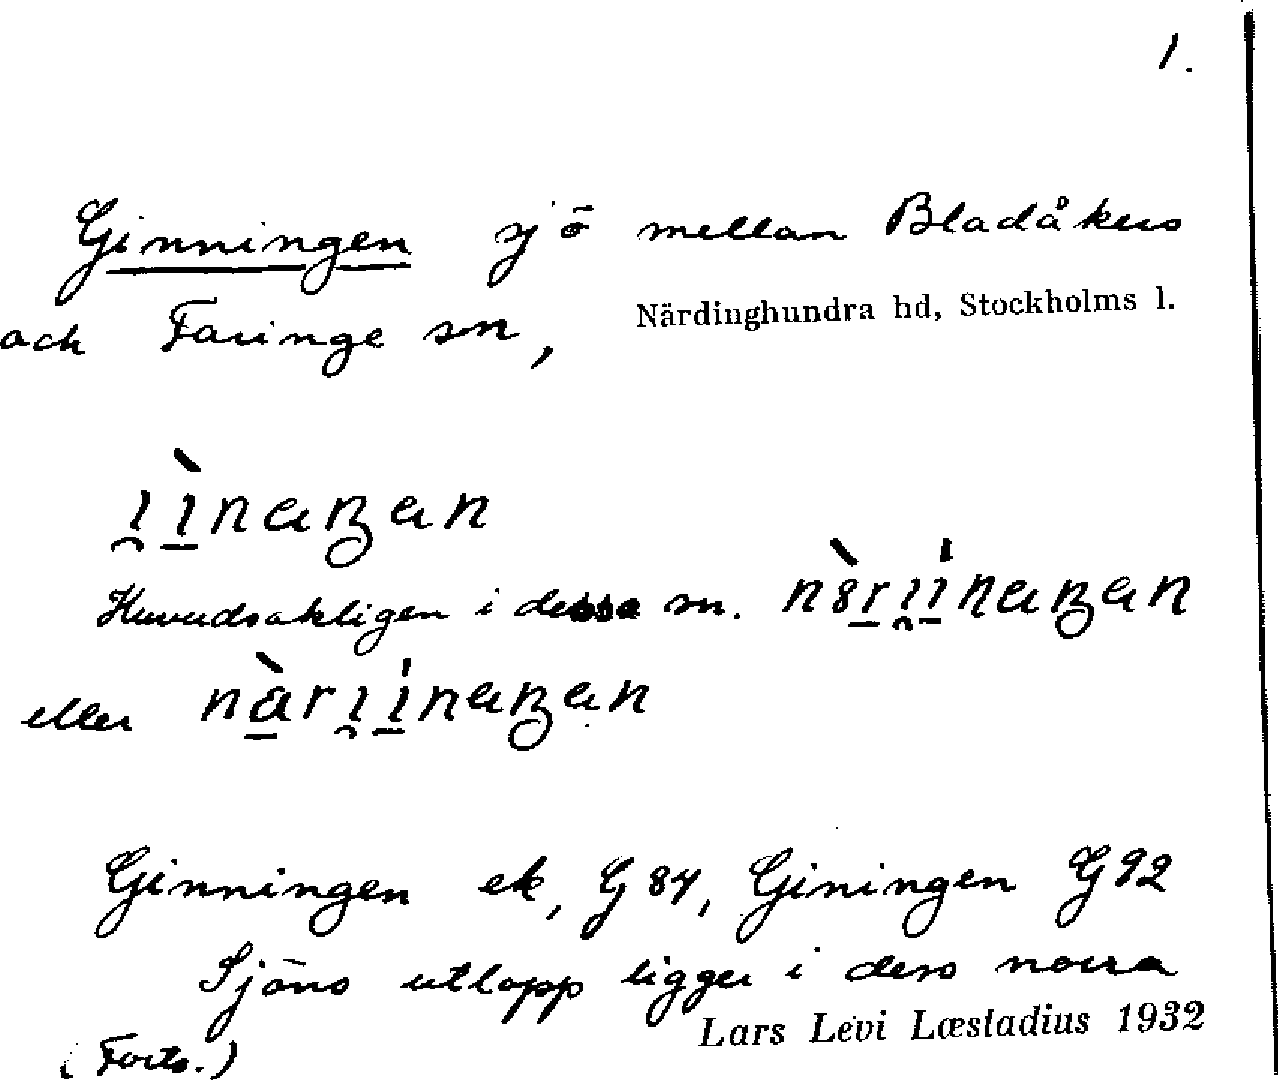 1.
Ginningen sjö mellan Bladåkers
och Faringe sn, Närdinghundra hd, Stockholms l.
Huvudsakligen i dessa sn.
eller
Ginningen ek, G 84, Giningen G 92
Sjöns utlopp ligger i dess norra
(Forts.) Lars Levi Læstadius 1932